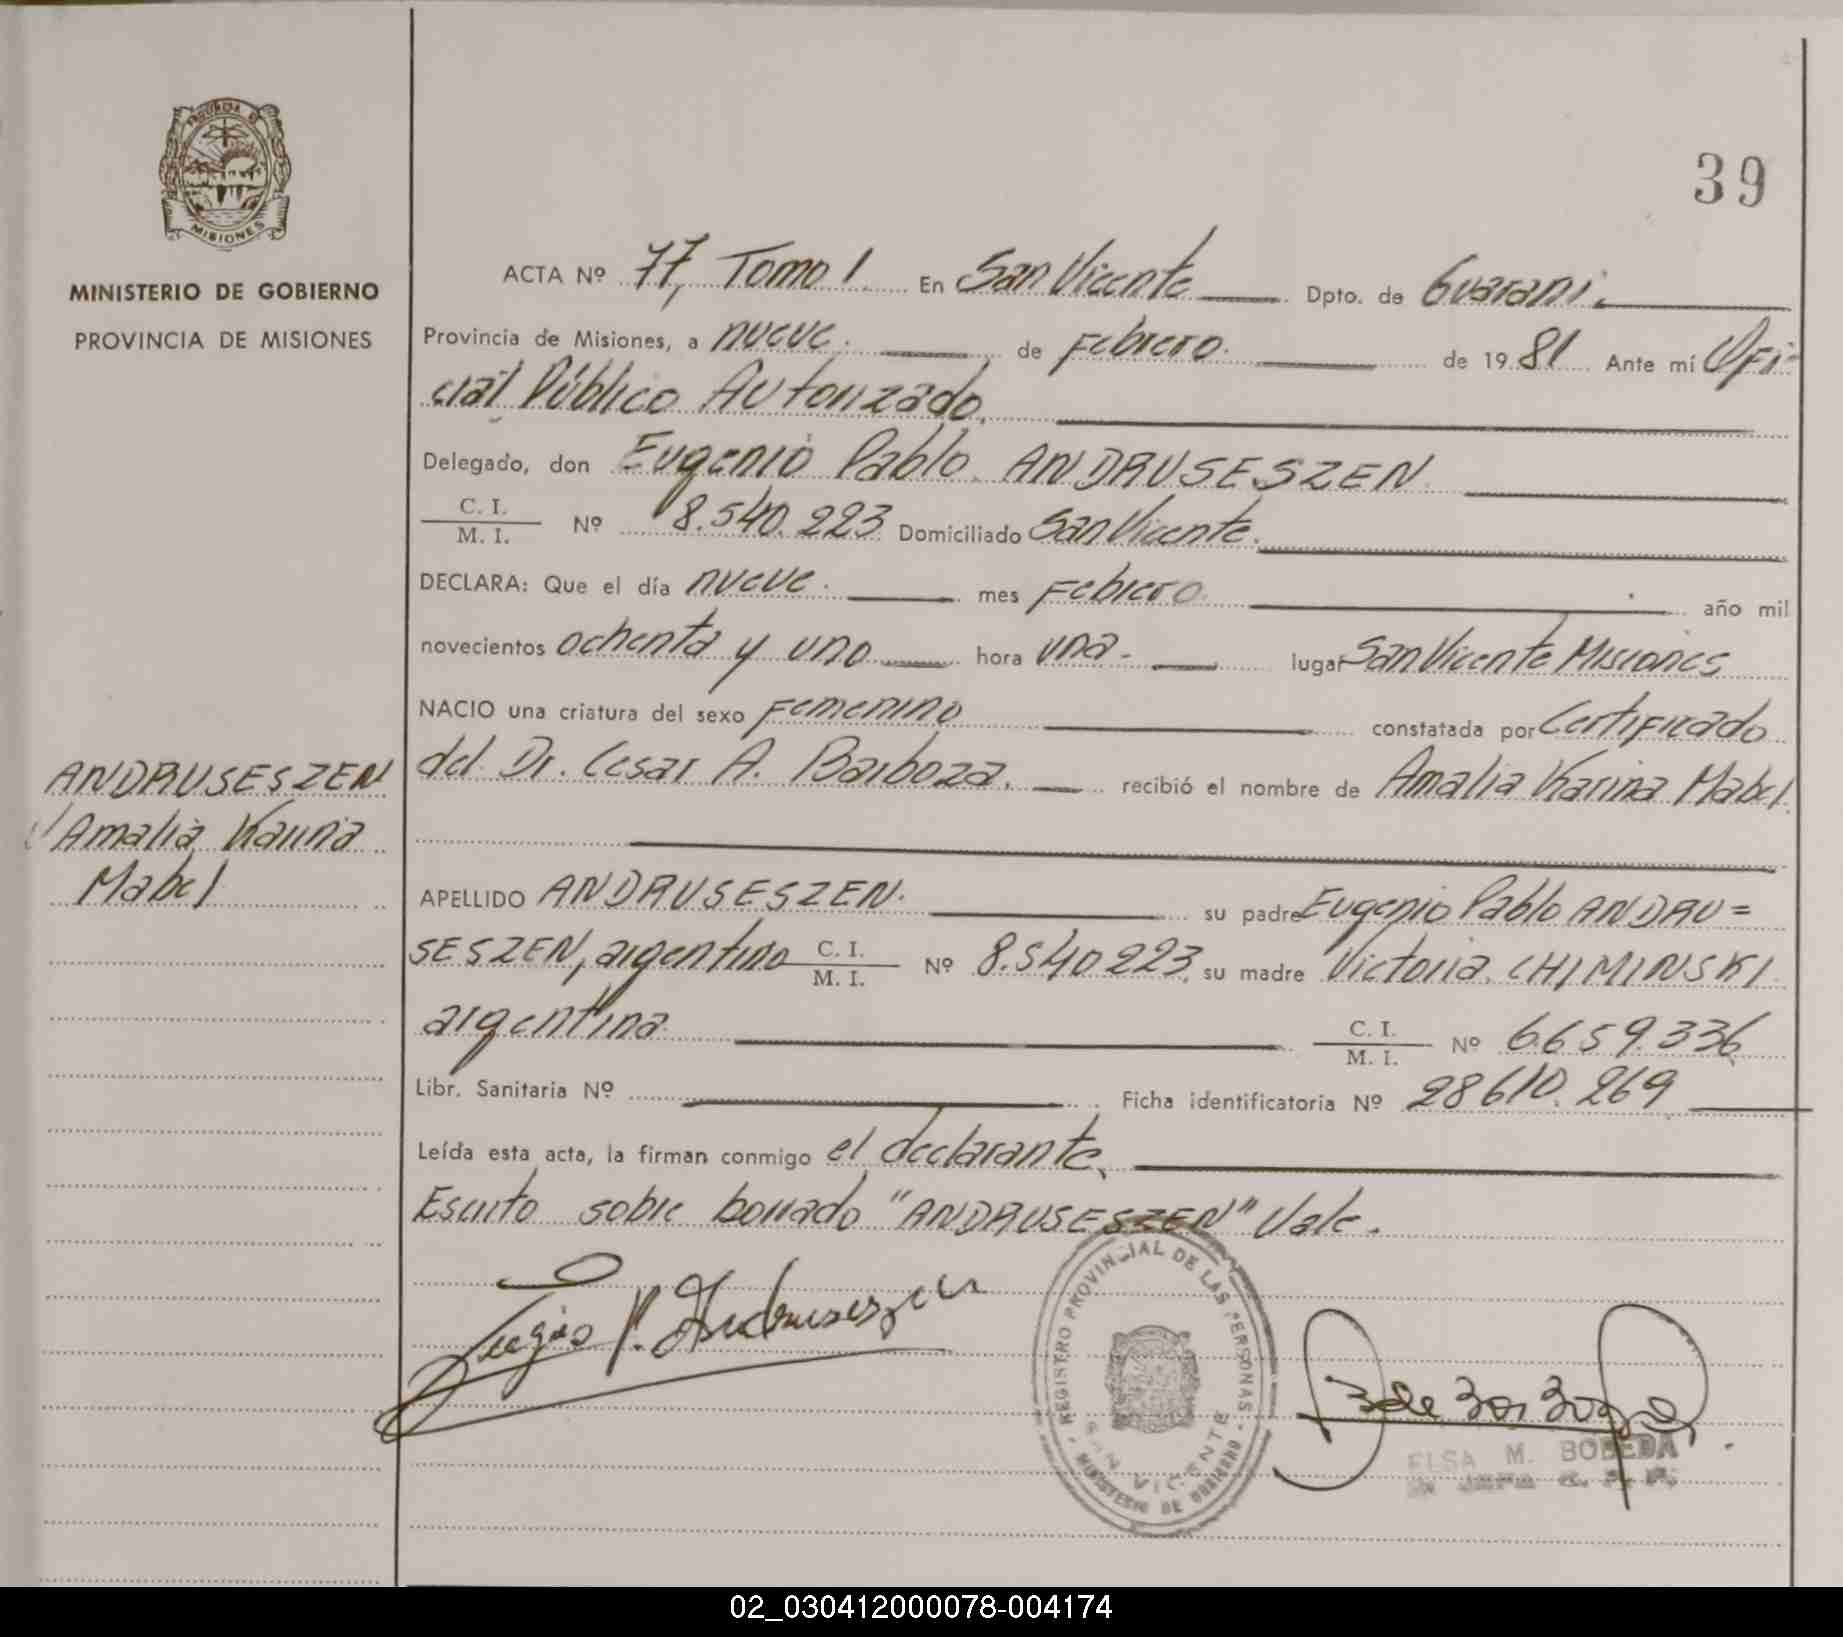 PROVINCIA DE
MISIONES
MINISTERIO DE GOBIERNO
PROVINCIA DE MISIONES
39
ACTA Nº 77, Tomo I. En San Vicente Dpto. de Guarani.
Provincia de Misiones, a nueve. de Febrero. de 1981 Ante mí Ofi-
cial Público Autorizado.
Delegado, don Eugenio Pablo ANDRUSESZEN
C. I.
M. I. Nº 8.540.223 Domiciliado San Vicente.
DECLARA: Que el día nueve. mes Febrero. año mil
novecientos ochenta y uno hora una. lugar San Vicente Misiones
NACIO una criatura del sexo Femenino constatada por Certificado
del Dr. Cesar A. Barboza. recibió el nombre de Amalia Karina Mabel.
ANDRUSESZEN
Amalia Karina
Mabel
APELLIDO ANDRUSESZEN. su padre Eugenio Pablo ANDRU=
SESZEN, argentino C. I. M. I. Nº 8.540.223, su madre Victoria CHIMINSKI
argentina. C. I. M. I. Nº 6.659.336
Libr. Sanitaria Nº Ficha identificatoria Nº 28610.269
Leída esta acta, la firman conmigo el declarante.
Escrito sobre borrado "ANDRUSESZEN" Vale.
Eugenio P. Andruseszen
REGISTRO PROVINCIAL DE LAS PERSONAS
SAN VICENTE
MINISTERIO DE GOBIERNO
ELSA M. BOBEDA
02_030412000078-004174